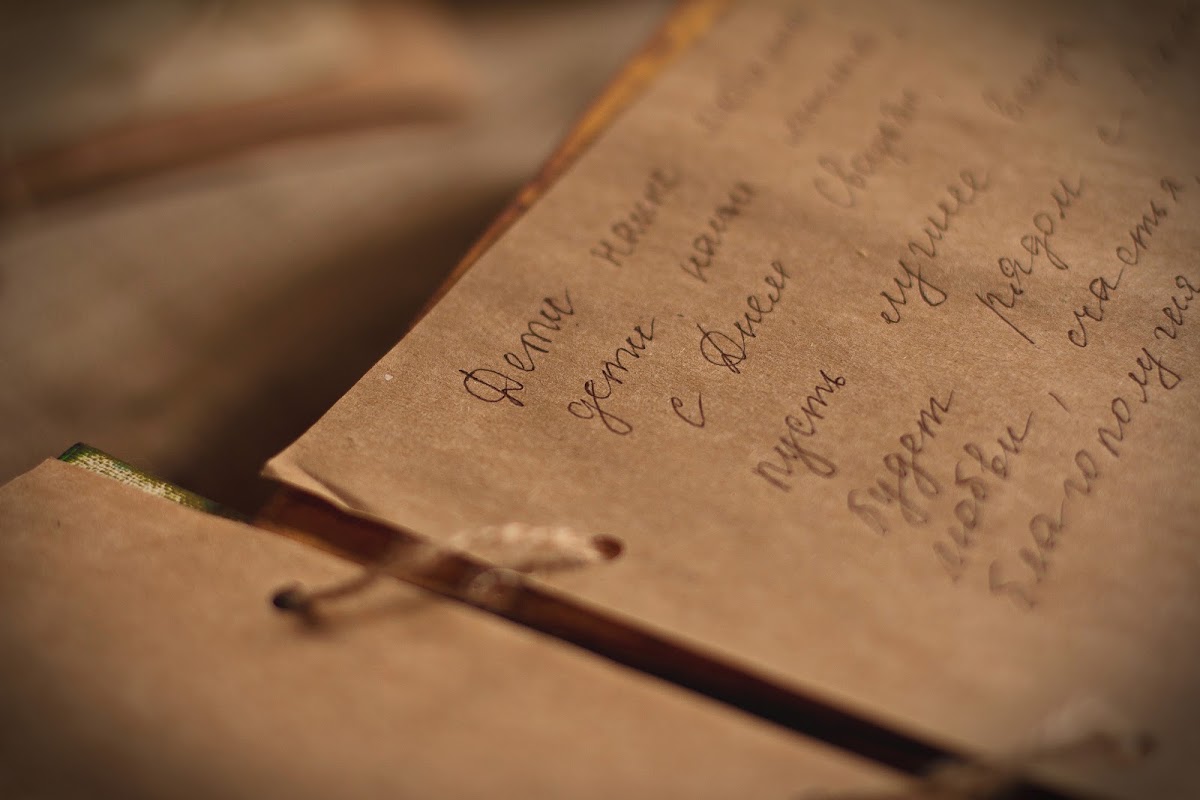 Дети наши
дети наши
с Днем Свадьбы
пусть лучшее
будет рядом с
любви, счастья
благополучия